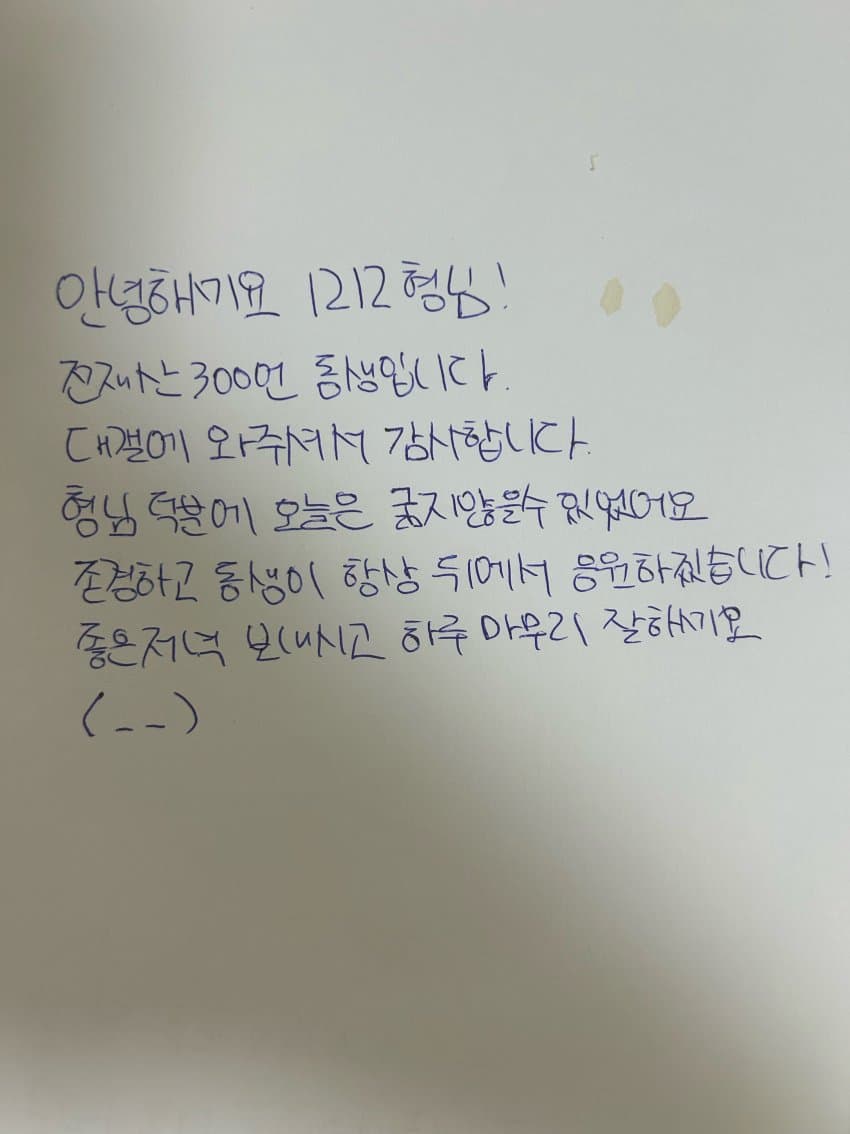 안녕하세요 1212형님!
전재산 300언 동생입니다.
대갤에 와주셔서 감사합니다.
형님 덕분에 오늘은 굶지않을수 있었어요
존경하고 동생이 항상 뒤에서 응원하겠습니다!
좋은저녁 보내시고 하루 마무리 잘하세요
(__)